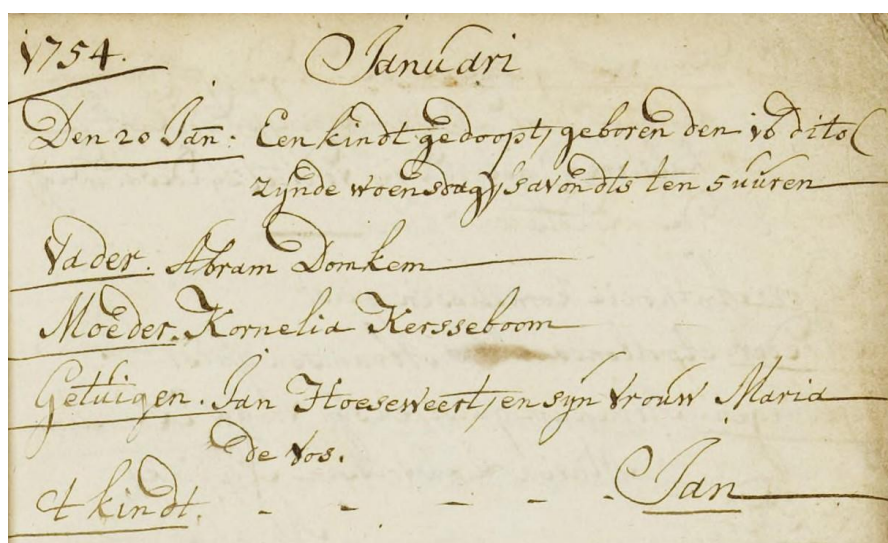 1754. Januari
Den 20 Jan: Een kindt gedoopt, geboren den 16 dito (
zijnde woensdag) savondts ten 5 uuren
Vader. Abram Domkem
Moeder. Kornelia Kersseboom
Getuigen. Jan Hoeseweert, en sijn vrouw Maria
De Vos.
t kindt. - - - - - Jan